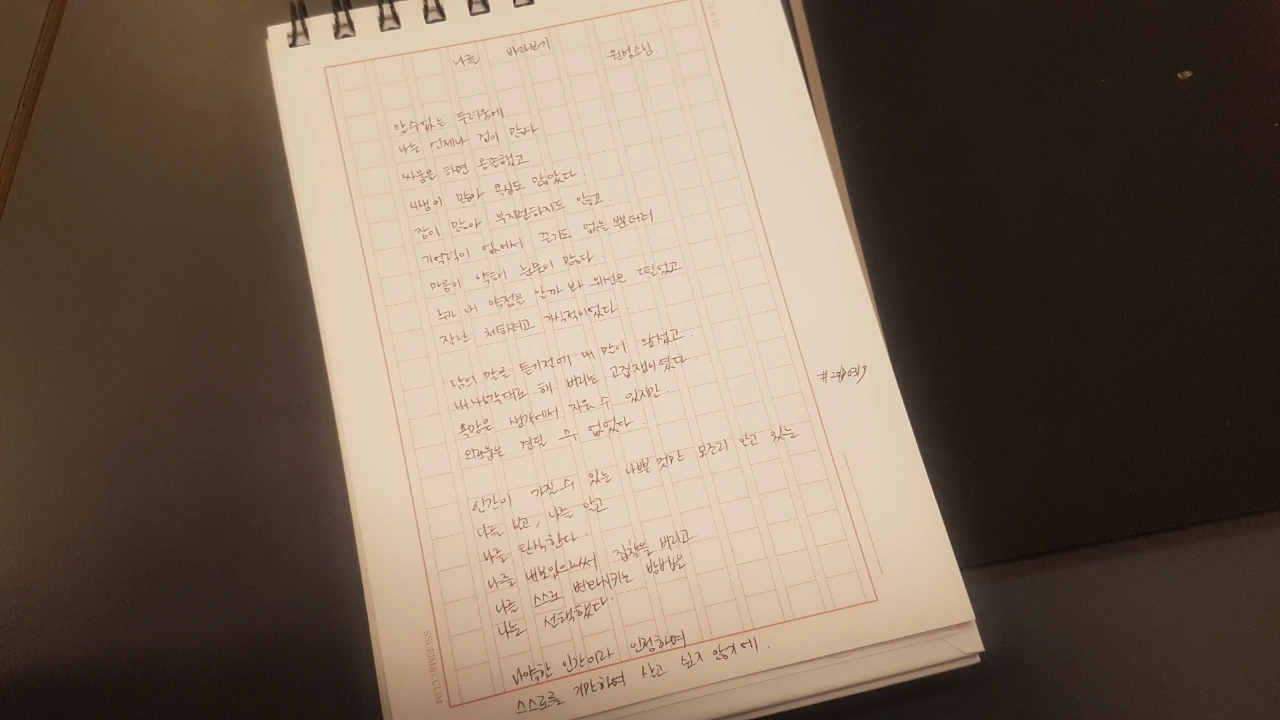 나를 바라보기 원성스님.
알수없는 두려움에
나는 언제나 겁이 많다
싸움을 하면 옹졸했고
시샘이 많아 욕심도 많았다
잠이 많아 부지런하지도 않고.
기억력이 없어서 끈기도 없을 뿐더러
마음이 약해 눈물이 많다.
누가 내 약점을 알까 봐 위선을 떨었고
잘난 체하려고 가식적이었다
남의 말을 듣기전에 내 말이 앞섰고.
내 생각대로 해 버리는 고집쟁이였다.
욕망은 생각에서 지울 수 있지만.
외로움은 견딜 수 없었다.
인간이 가질 수 있는 나쁜 것만 모조리 안고 있는
나를 보고, 나를 알고
나를 탄식한다.
나를 내보임으로써 집착을 버리고
나를 스스로 변화시키는 방법을
나는 선택했다.
나약한 인간이라 인정하며
스스로를 기만하며 살고 싶지 않기에.
SSUGIMACCLIM